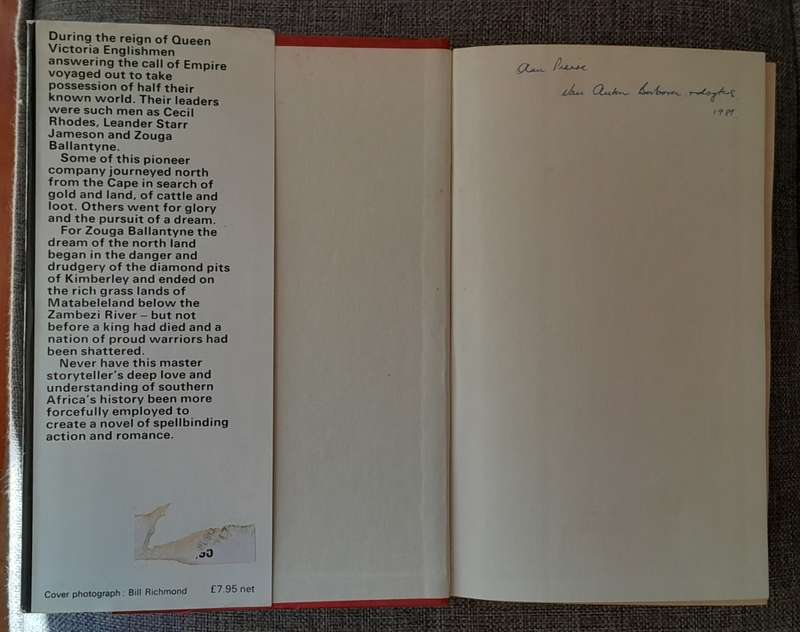 During the reign of Queen
Victoria Englishmen
answering the call of Empire
voyaged out to take
possession of half their
known world. Their leaders
were such men as Cecil
Rhodes, Leander Starr
Jameson and Zouga
Ballantyne.
Some of this pioneer
company journeyed north
from the Cape in search of
gold and land, of cattle and
loot. Others went for glory
and the pursuit of a dream.
For Zouga Ballantyne the
dream of the north land
began in the danger and
drudgery of the diamond pits
of Kimberley and ended on
the rich grass lands of
Matabeleland below the
Zambezi River – but not
before a king had died and a
nation of proud warriors had
been shattered.
Never have this master
storyteller's deep love and
understanding of southern
Africa's history been more
forcefully employed to
create a novel of spellbinding
action and romance.
Cover photograph: Bill Richmond £7.95 net
Aan
van Anton